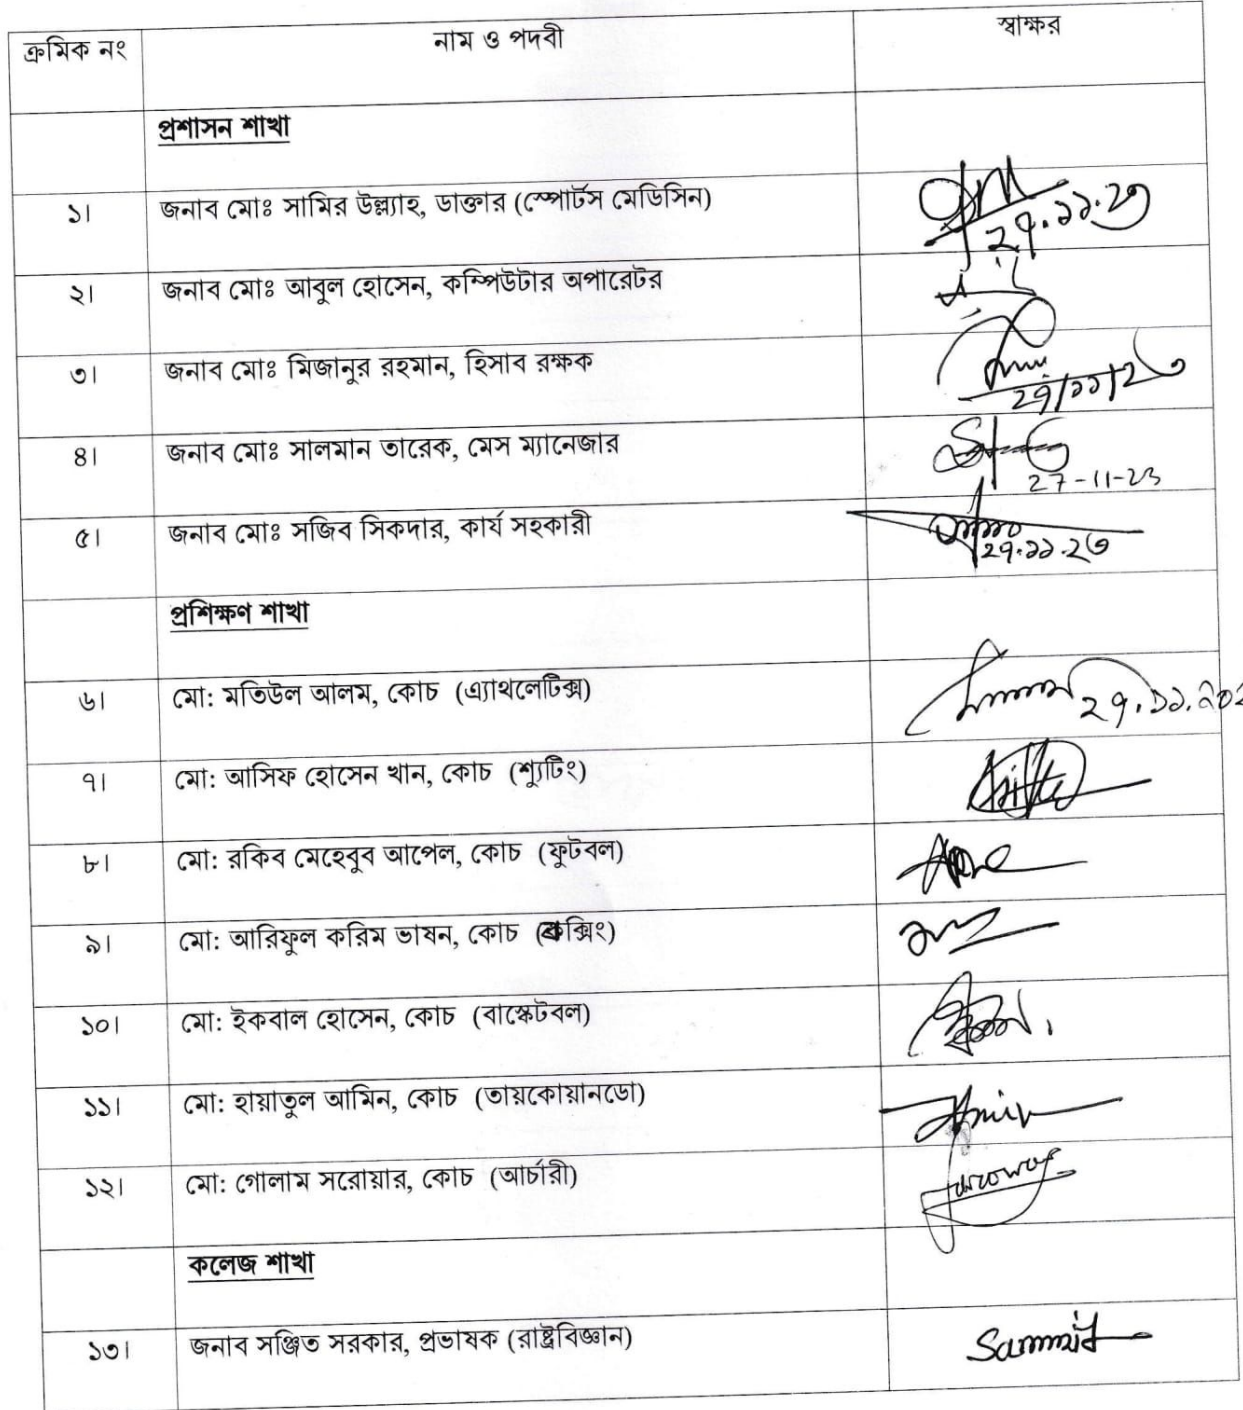 ক্রমিক নং নাম ও পদবী স্বাক্ষর
প্রশাসন শাখা
১। জনাব মোঃ সামির উল্ল্যাহ, ডাক্তার (স্পোর্টস মেডিসিন)
২৭.১১.২৩
২। জনাব মোঃ আবুল হোসেন, কম্পিউটার অপারেটর
৩। জনাব মোঃ মিজানুর রহমান, হিসাব রক্ষক
২৭/১১/২৩
৪। জনাব মোঃ সালমান তারেক, মেস ম্যানেজার
27-11-23
৫। জনাব মোঃ সজিব সিকদার, কার্য সহকারী
২৭.১১.২৩
প্রশিক্ষণ শাখা
৬। মো: মতিউল আলম, কোচ (এ্যাথলেটিক্স)
২৭.১১.২০২
৭। মো: আসিফ হোসেন খান, কোচ (শ্যুটিং)
৮। মো: রকিব মেহেবুব আপেল, কোচ (ফুটবল)
৯। মো: আরিফুল করিম ভাষন, কোচ (বক্সিং)
১০। মো: ইকবাল হোসেন, কোচ (বাস্কেটবল)
১১। মো: হায়াতুল আমিন, কোচ (তায়কোয়ানডো)
১২। মো: গোলাম সরোয়ার, কোচ (আর্চারী)
কলেজ শাখা
১৩। জনাব সঞ্জিত সরকার, প্রভাষক (রাষ্ট্রবিজ্ঞান)